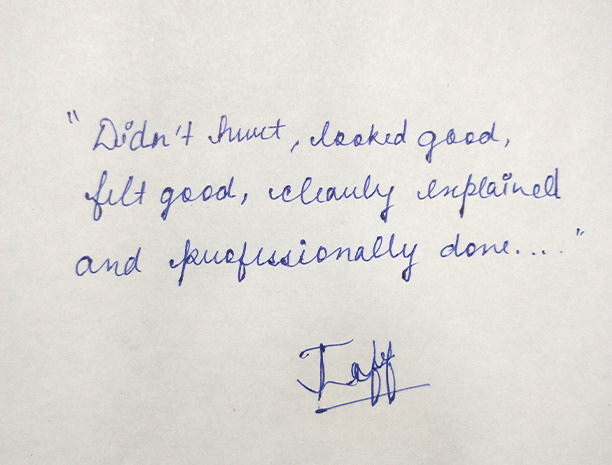 "Didn't hurt, looked good,
felt good, clearly explained
and professionally done...."
Taff